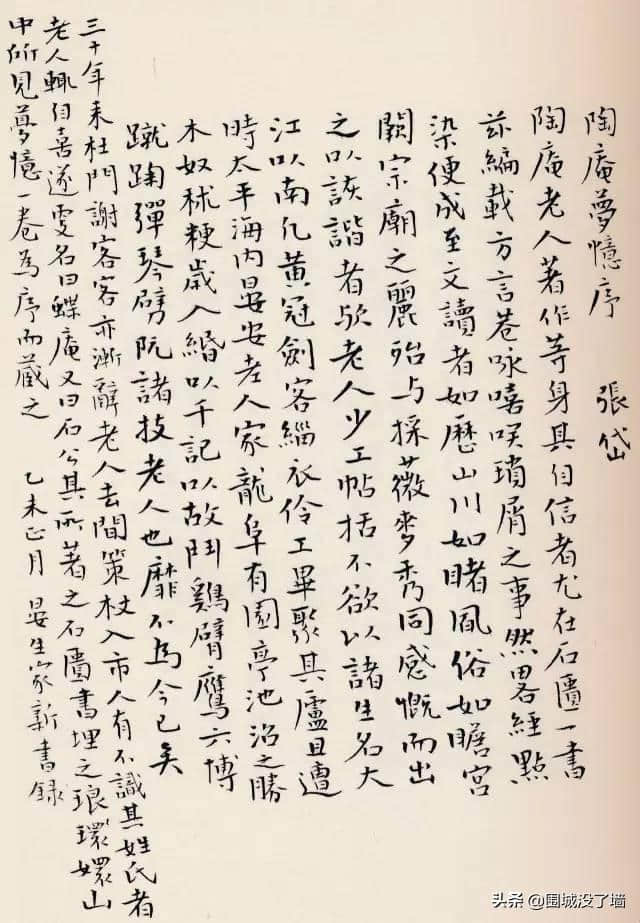 陶庵夢憶序 張岱
陶庵老人著作等身其自信者尤在石匱一書
茲編載方言巷咏嘻咲瑣屑之事然畧經點
染便成至文讀者如歷山川如睹風俗如瞻宮
闕宗廟之麗殆与採薇麥秀同感慨而出
之以詼諧者歟老人少工帖括不欲以諸生名大
江以南凡黃冠劍客緇衣伶工畢聚其廬且遭
時太平海內晏安老人家龍阜有園亭池沼之勝
木奴秫粳歲入緡以千記以故鬥雞臂鷹六博
蹴踘彈琴劈阮諸技老人也靡不為今已矣
三十年來杜門謝客客亦漸辭老人去間策杖入市人有不識其姓氏者
老人輒自喜遂更名曰蝶庵又曰石公其所著之石匱書埋之琅環嬛山
中所見夢憶一卷為序而藏之 乙未正月 晏生家新書錄
头条 @围城没了墙